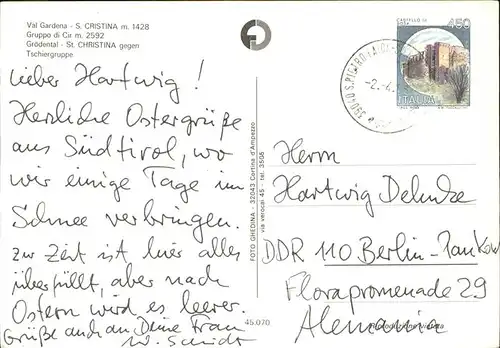 Val Gardena - S. CRISTINA m. 1428
Gruppo di Cir m. 2592
Grödental - St. CHRISTINA gegen
Tschiergruppe
Lieber Hartwig!
Herzliche Ostergrüße
aus Südtirol, wo
wir einige Tage im
Schnee verbringen.
Zur Zeit ist hier alles
überfüllt, aber nach
Ostern wird es leerer.
Grüße auch an Deine Frau
W. Schmidt
FOTO GHEDINA - 32043 Cortina d'Ampezzo
via verocai 45 - tel. 3505
45.070
CASTELLO DI
450
ITALIA
39040 S. PIETRO
-2.-4.
Herrn
Hartwig
DDR 110 Berlin-Pankow
Florapromenade 29
Alemania
Riproduzione vietata